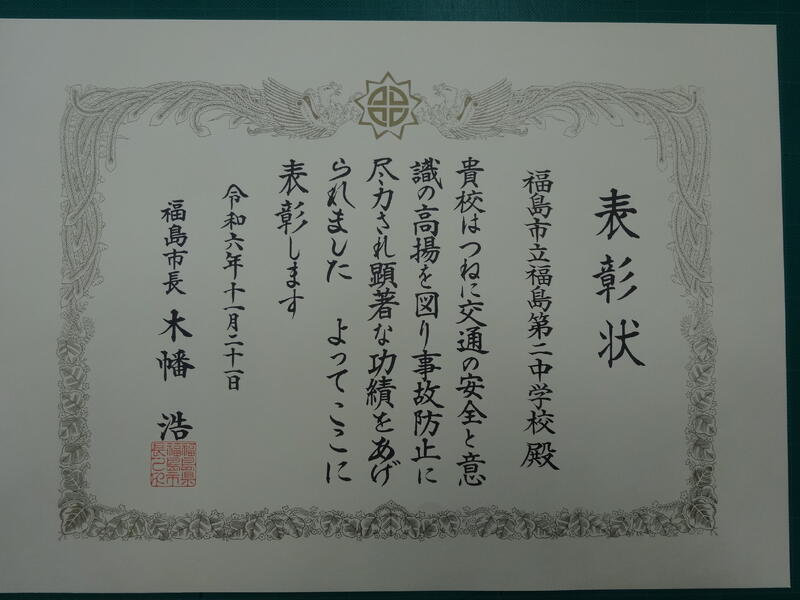 表彰状
福島市立福島第二中学校殿
貴校はつねに交通の安全と意
識の高揚を図り事故防止に
尽力され顕著な功績をあげ
られました よってここに
表彰します
令和六年十一月二十一日
福島市長 木幡 浩
福島県
福島市
長之印